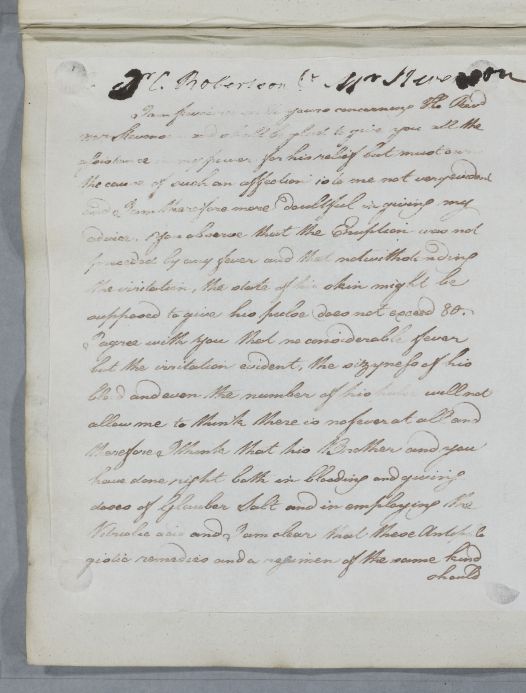 Dr C. Robertson for Mr Stevenson
I am favoured with yours concerning The Revd
Mr Stevenson and should be glad to give you all the
assistance in my power for his relief but must own
the cause of such an affection is to me not very evident
and I am therefore more doubtful in giving my
advice. You observe that the Eruption was not
preceded by any fever and that notwithstanding
the irritation, the state of his skin might be
supposed to give his pulse does not exceed 80.
I agree with you that no considerable fever
but the irritation evident, the sizyness of his
blood and even the number of his pulse will not
allow me to think there is no fever at all and
therefore I think that his Brother and you
have done right both in bleeding and giving
doses of Glauber Salt and in employing the
Vitriolic acid and I am clear that these Antiphlo
gistic remedies and a regimen of the same kind
should